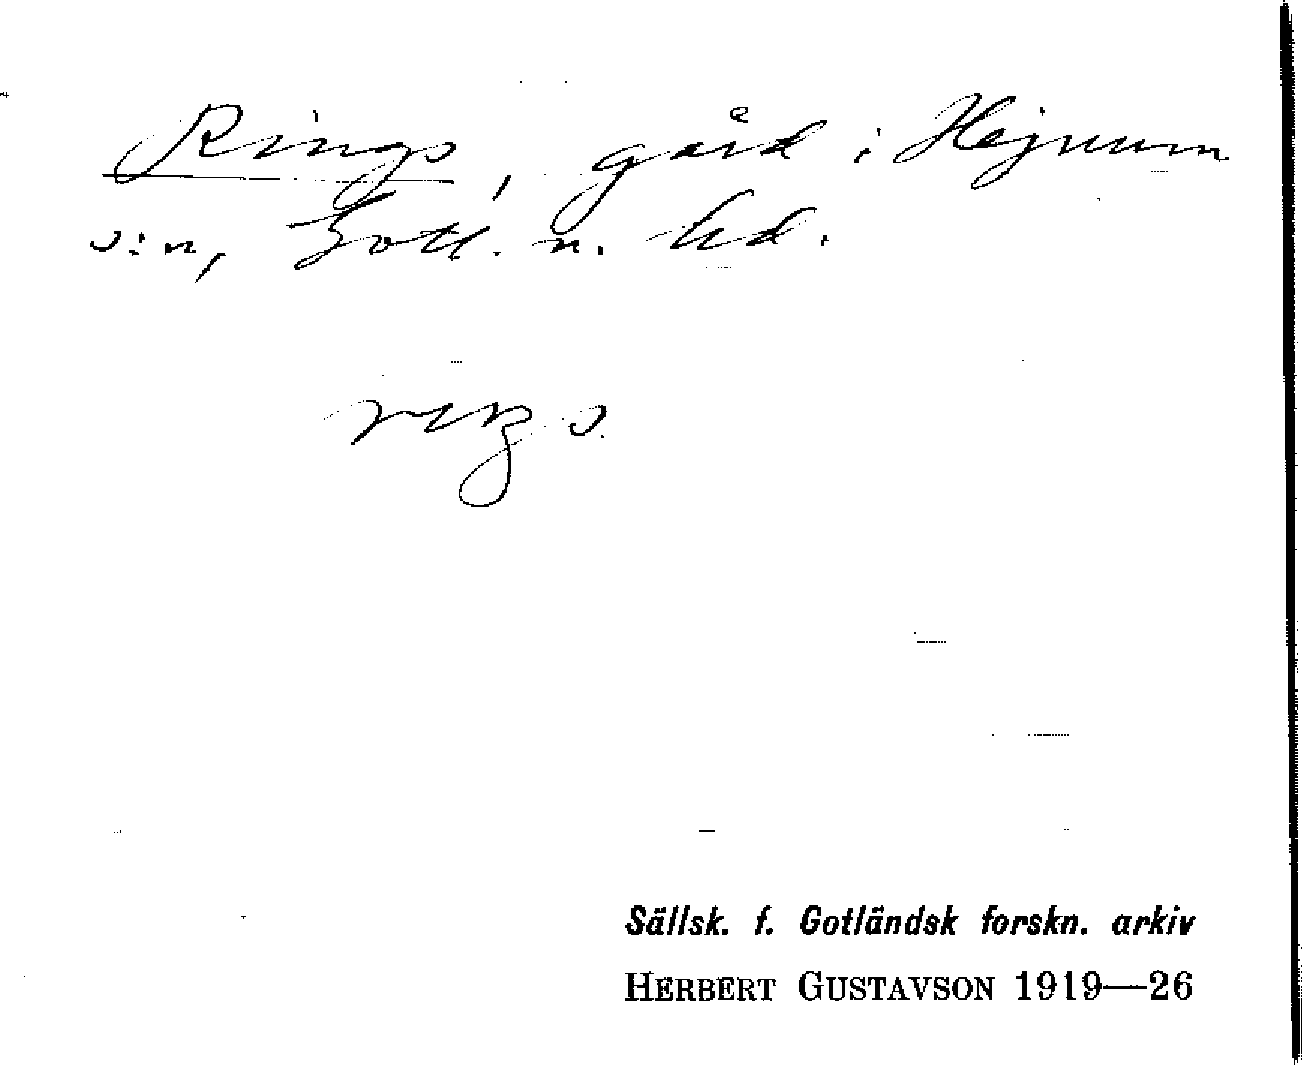 Rings, gård i Hejnum
s:n, Gotl. n. hd.
rıŋs
Sällsk. f. Gotländsk forskn. arkiv
HERBERT GUSTAVSON 1919—26